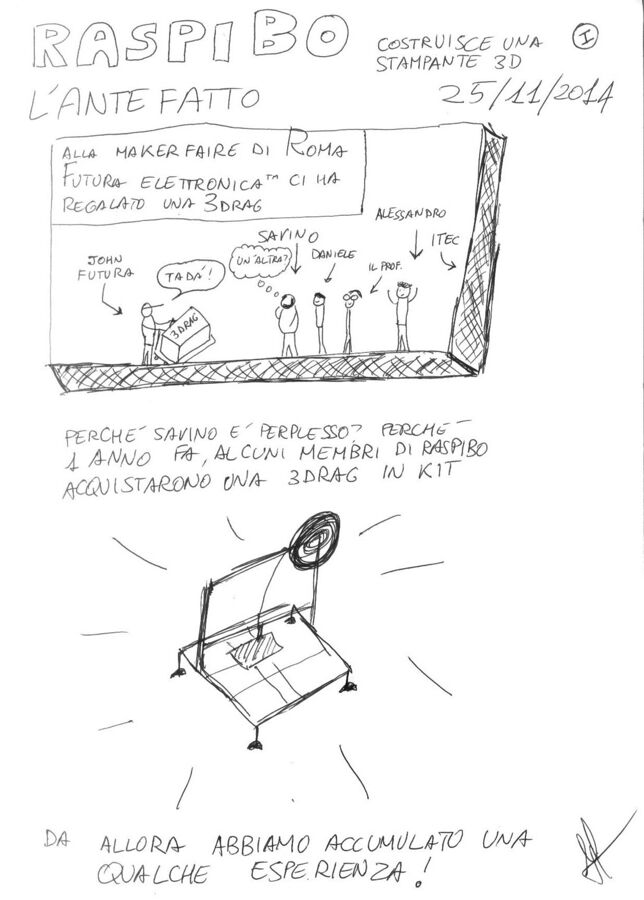 RASPIBO
COSTRUISCE UNA
STAMPANTE 3D
I
L'ANTEFATTO
25/11/2014
ALLA MAKER FAIRE DI ROMA
FUTURA ELETTRONICA™ CI HA
REGALATO UNA 3DRAG
JOHN
FUTURA
TADÁ!
3DRAG
UN'ALTRA?
SAVINO
DANIELE
IL PROF.
ALESSANDRO
ITEC
PERCHÉ SAVINO É PERPLESSO? PERCHÉ
1 ANNO FA, ALCUNI MEMBRI DI RASPIBO
ACQUISTARONO UNA 3DRAG IN KIT
DA ALLORA ABBIAMO ACCUMULATO UNA
QUALCHE ESPERIENZA!